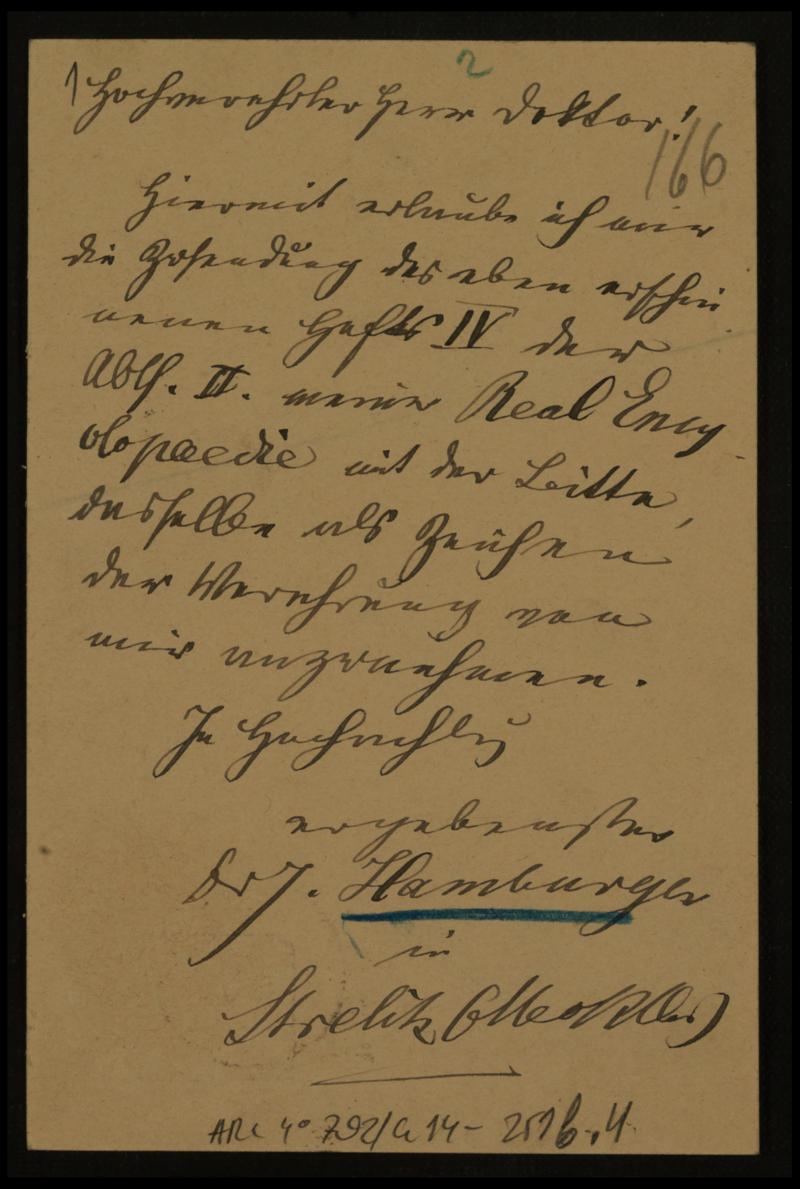 2
Hochverehrter Herr Doktor!
166
Hiermit erlaube ich mir
die Zusendung des eben erschie
nenen Hefts IV der
Abth. II. meiner Real Ency
clopaedie mit der Bitte,
dasselbe als Zeichen
der Verehrung von
mir anzunehmen.
In Hochachtg
ergebenster
Dr J. Hamburger
in
Strelitz (Mecklbg)
ARC 4° 792/G 14 - 251b.4